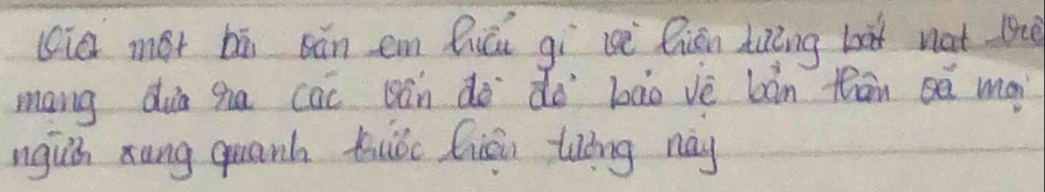 Viết một bài văn em hiểu gì về hiện tượng bắt nạt trên
mạng đưa ra các vấn đề để bảo vệ bản thân và mọi
người xung quanh trước hiện tượng này